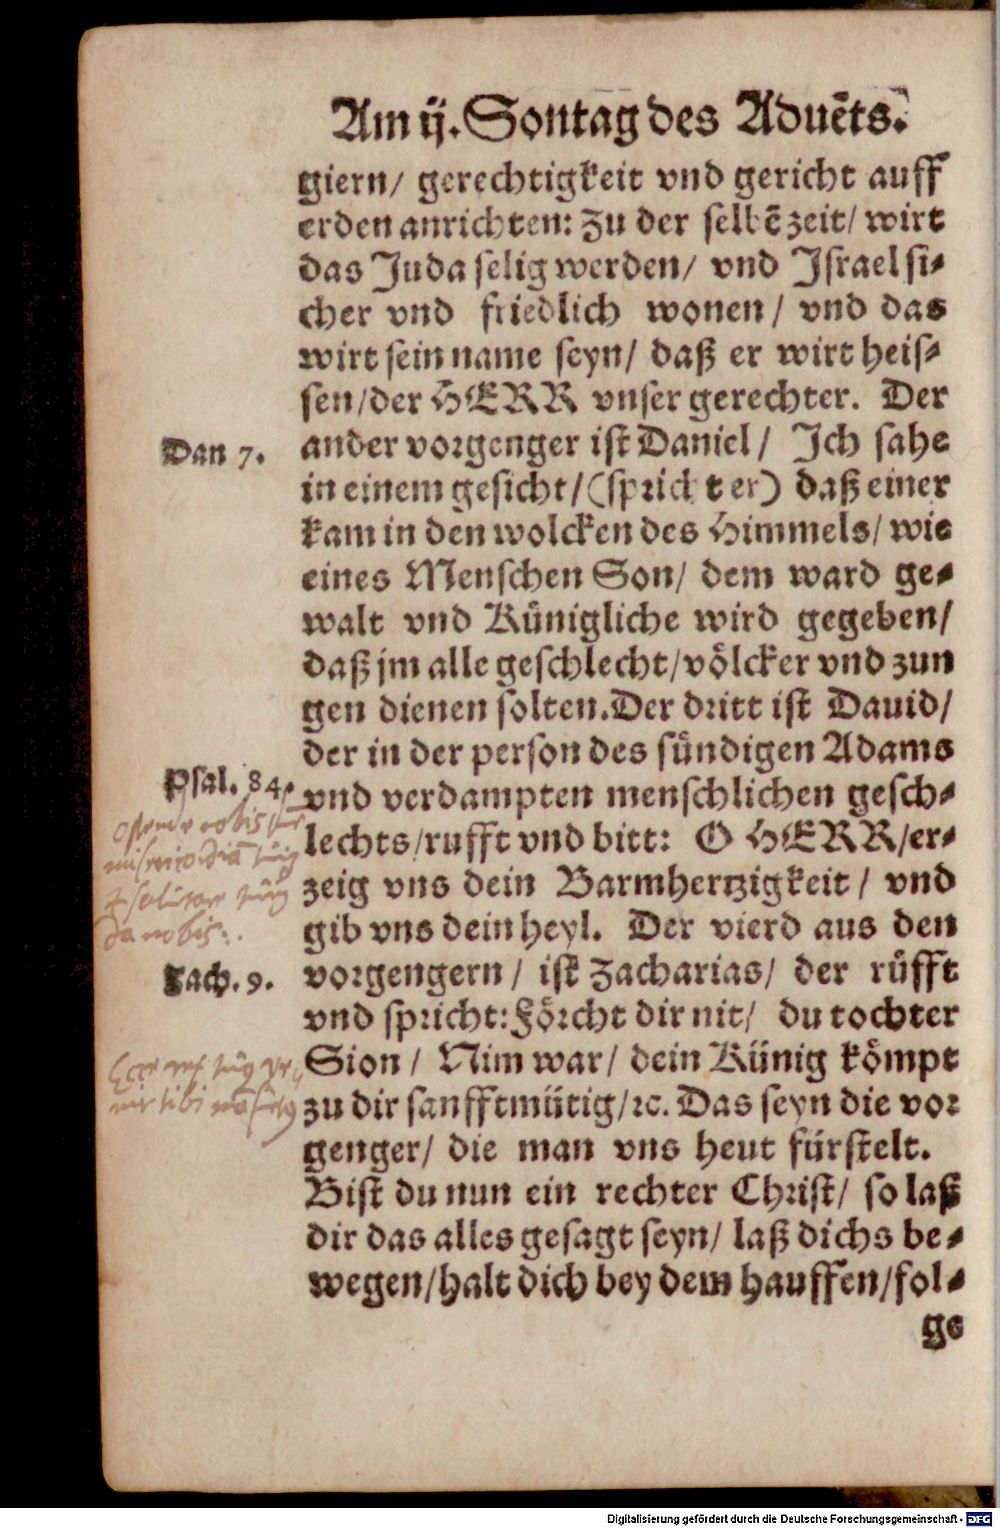 Am ij. Sontag des Aduẽts.
giern/ gerechtigkeit vnd gericht auff
erden anrichten: Zu der selbẽ zeit/ wirt
das Juda selig werden/ vnd Jsrael si-
cher vnd friedlich wonen/ vnd das
wirt sein name seyn/ daß er wirt heis-
sen/der HERR vnser gerechter. Der
Dan 7.
ander vorgenger ist Daniel/ Jch sahe
in einem gesicht/(spricht er) daß einer
kam in den wolcken des Himmels/ wie
eines Menschen Son/ dem ward ge-
walt vnd Künigliche wird gegeben/
daß jm alle geschlecht/völcker vnd zun
gen dienen solten.Der dritt ist Dauid/
der in der person des sündigen Adams
Psal. 84.
vnd verdampten menschlichen gesch-
Ostende nobis
lechts/rufft vnd bitt: O HERR/er-
misericordiã tuã
zeig vns dein Barmhertzigkeit/ vnd
& salutare tuũ
gib vns dein heyl. Der vierd aus den
da nobis.
Zach. 9.
vorgengern/ ist Zacharias/ der rüfft
vnd spricht: Förcht dir nit/ du tochter
Sion/ Nim war/ dein Künig kömpt
Ecce rex tuus ve-
zu dir sanfftmütig/ꝛc. Das seyn die vor
nit tibi
genger/ die man vns heut fürstelt.
Bist du nun ein rechter Christ/ so laß
dir das alles gesagt seyn/ laß dichs be-
wegen/halt dich bey dem hauffen/fol-
ge
Digitalisierung gefördert durch die Deutsche Forschungsgemeinschaft - DFG